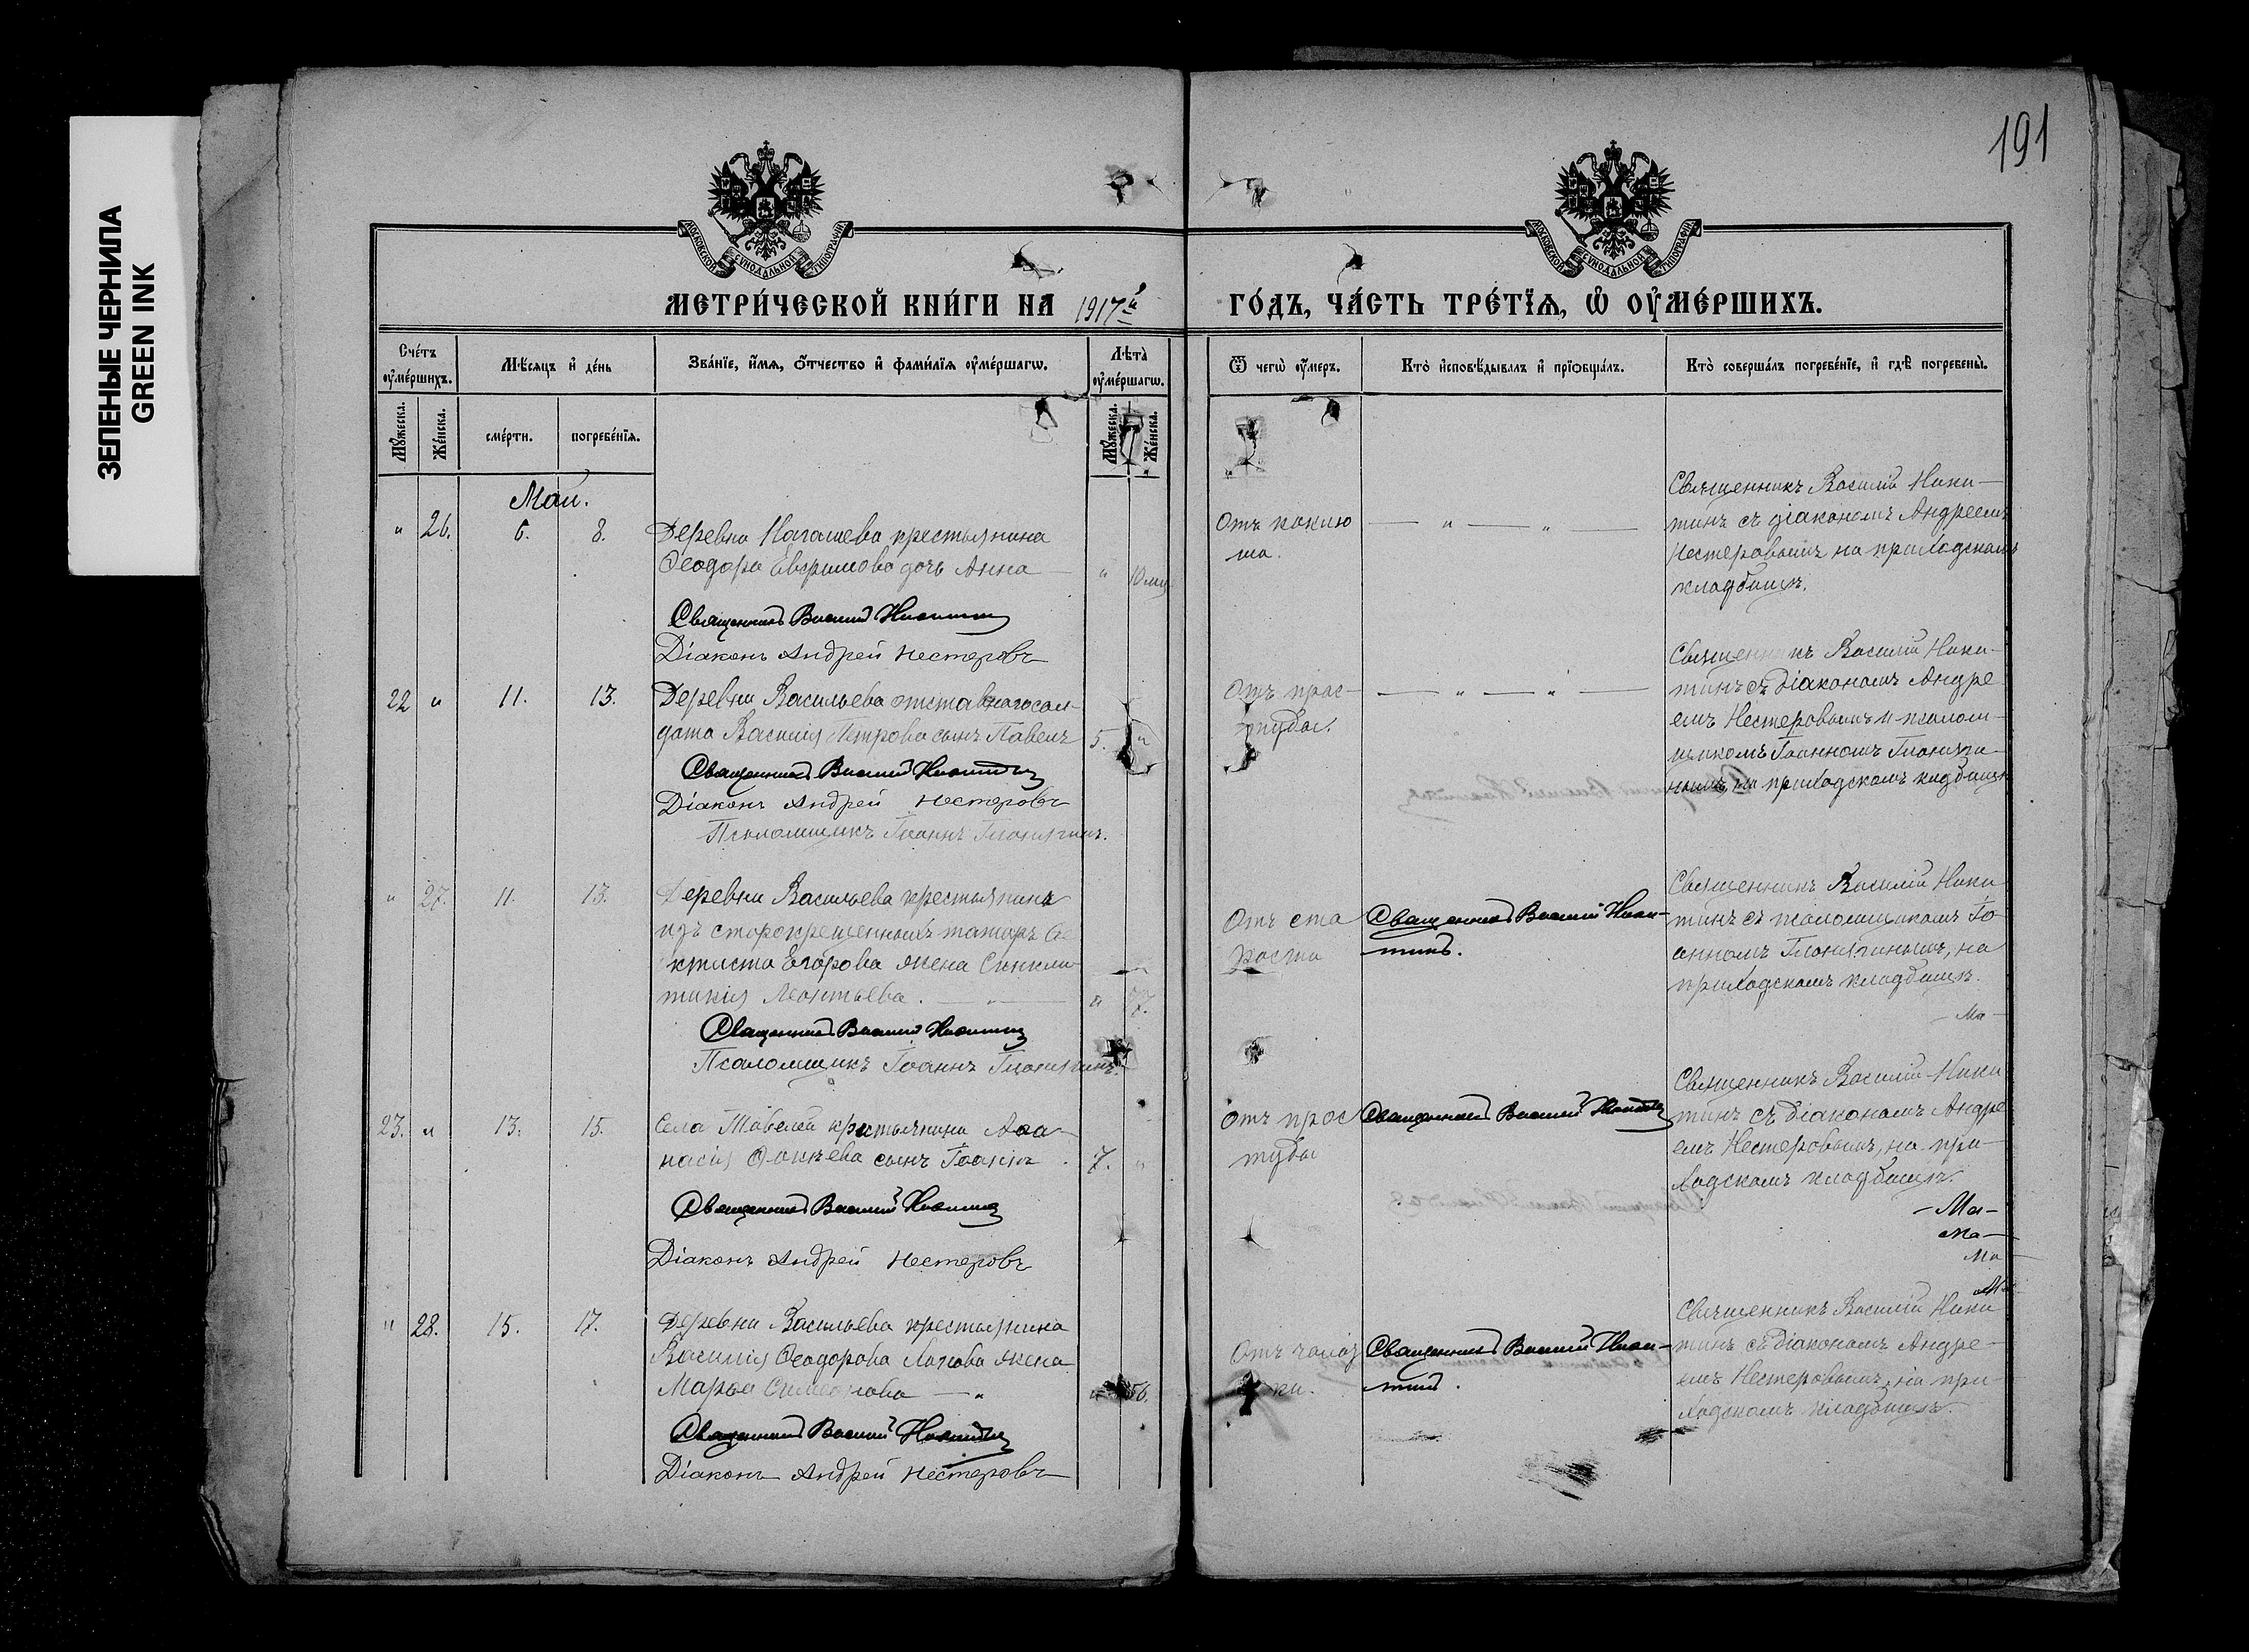 ЗЕЛЕНЫЕ ЧЕРНИЛА
GREEN INK
191
МОСКОВСКОЙ СѴНОДАЛЬНОЙ ТИПОГРАФІИ
МОСКОВСКОЙ СѴНОДАЛЬНОЙ ТИПОГРАФІИ
МЕТРИ́ЧЕСКОЙ КНИ́ГИ НА 1917й ГО́ДЪ, ЧА́СТЬ ТРЕ́ТЇѦ, Ѽ ОУ҆МЕ́РШИХЪ.
Сче́тъ оу҆ме́ршихъ.
Мѣ́сѧцъ и҆ де́нь
Зва́нїе, и҆́мѧ, ѻ҆́тчество и҆ фами́лїѧ оу҆ме́ршагѡ.
Лѣ̀та оу҆ме́ршагѡ.
Ѿ чегѡ̀ оу҆́меръ.
Кто̀ и҆сповѣ́дывалъ и҆ прїѡбща́лъ.
Кто̀ соверша́лъ погребе́нїе, и҆ гдѣ̀ погребены̀.
Мꙋ́жеска.
Же́нска.
сме́рти.
погребе́нїѧ.
Мꙋ́жеска.
Же́нска.
Май.
" 26. 6. 8.
Деревни крестьянина
Ѳеодора дочь Анна
" 10 мц
Священникъ Василий Никитин
Діаконъ Андрей Нестеровъ
Отъ
— " — " —
Священникъ Василій Ники-
тинъ съ діакономъ Андреемъ
Нестеровымъ на приходскомъ
кладбищѣ.
22 " 11. 13.
Деревни Васильева отставного сол-
дата Василія Петрова сынъ Павелъ
5. "
Священникъ Василий Никитин
Діаконъ Андрей Нестеровъ
Псаломщикъ Іоаннъ
Отъ прос-
туды.
— " — " —
Священникъ Василій Ники-
тинъ съ діакономъ Андре
емъ Нестеровымъ и псалом-
щикомъ Іоанномъ
на приходскомъ кладбищѣ
" 27. 11. 13.
Деревни Васильева крестьянина
изъ старокрещенныхъ татаръ Ѳе
ктиста Егорова жена Синкли
тикія Леонтьева. — " —
" 57.
Священникъ Василий Никитин
Псаломщикъ Іоаннъ
Отъ ста
рости
Священникъ Василий Ники-
тинъ.
Священникъ Василій Ники
тинъ съ псаломщикомъ Іо
анномъ на
приходскомъ кладбищѣ.
— Ма —
23. " 13. 15.
Села Тавелей крестьянина Аѳа-
насія сынъ Іоаннъ.
7. "
Священникъ Василий Никитин
Діаконъ Андрей Нестеровъ
Отъ прос
туды
Священникъ Василий Никитин
Священникъ Василій Ники
тинъ съ діакономъ Андре
емъ Нестеровымъ, на при-
ходскомъ кладбищѣ.
— Ма —
Ма —
Ма —
" 28. 15. 17.
Деревни Васильева крестьянина
Василія Ѳеодорова жена
Марѳа Симеонова — "
" 56.
Священникъ Василий Никитин
Діаконъ Андрей Нестеровъ
Отъ чахот
ки.
Священникъ Василий Ники-
тинъ.
Священникъ Василій Ники
тинъ съ діакономъ Андре-
емъ Нестеровымъ, на при-
ходскомъ кладбищѣ.